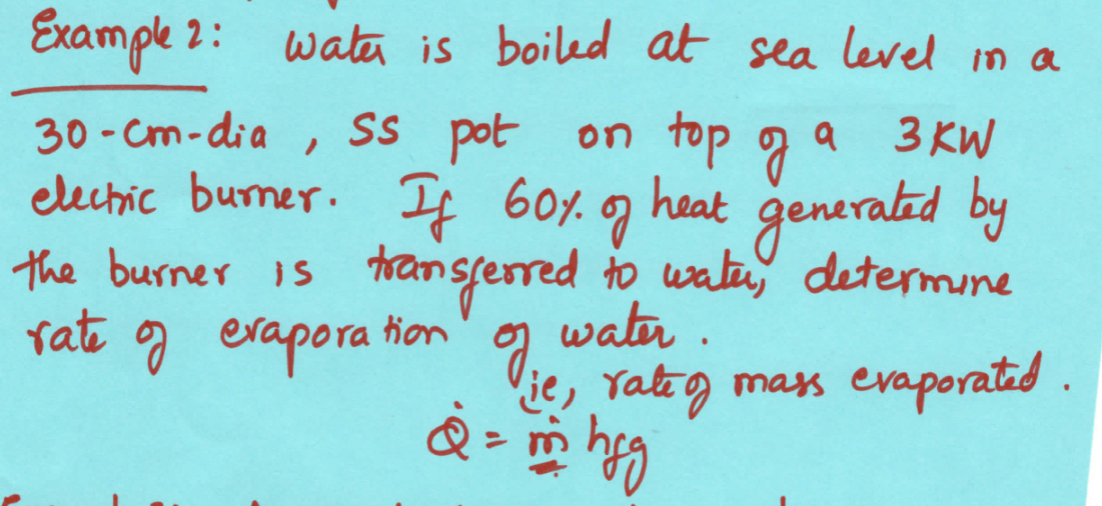 Example 2: water is boiled at sea level in a
30-cm-dia, SS pot on top of a 3KW
electric burner. If 60% of heat generated by
the burner is transferred to water, determine
rate of evaporation of water.
ie, rate of mass evaporated.
Q̇ = ṁ hfg